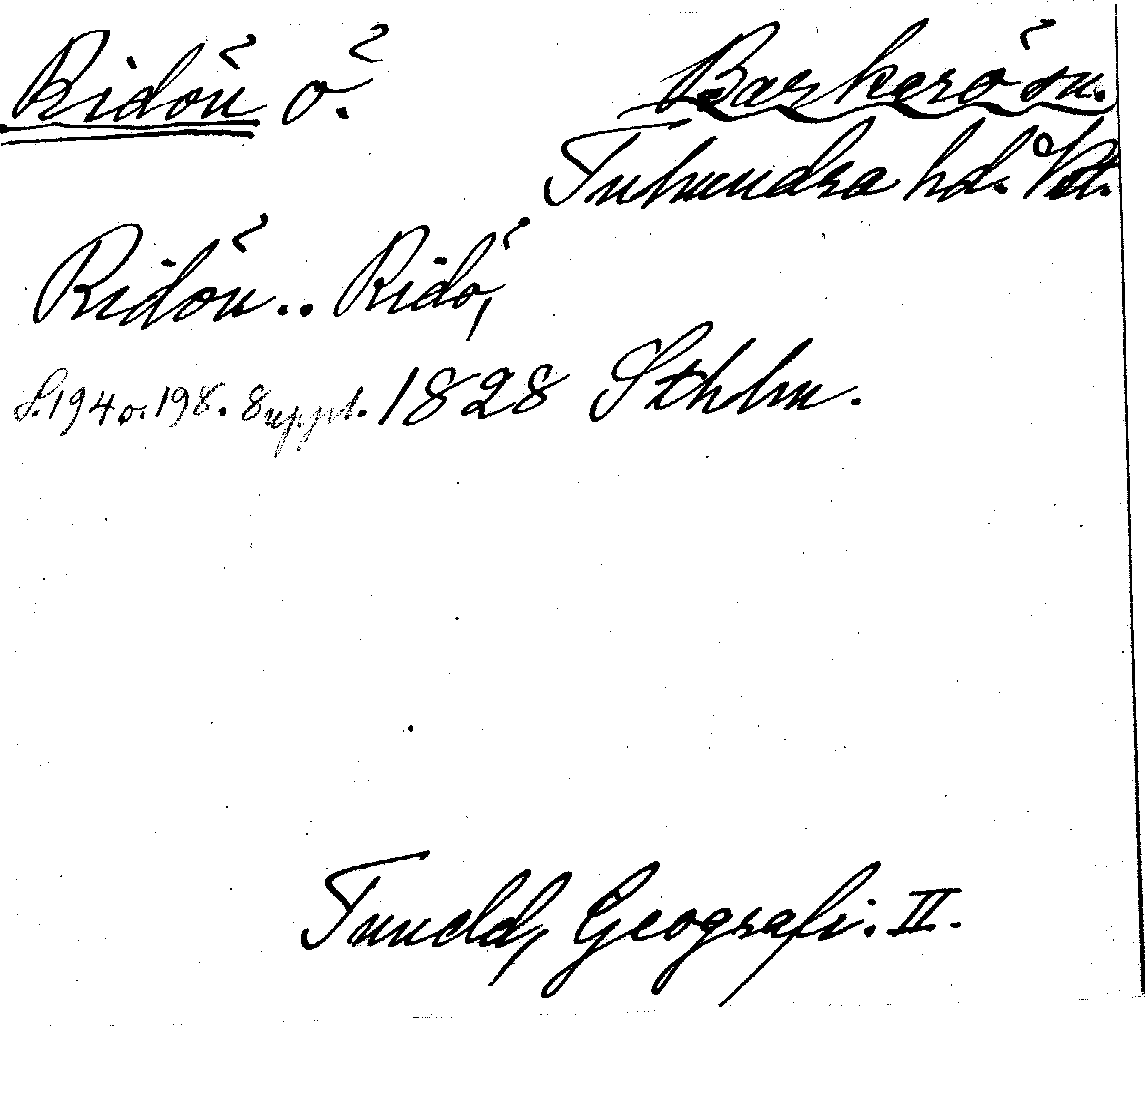 Ridön ö. Barkarö sn.
Tuhundra hd. Vstm.
Ridön.. Ridö,
S. 194 o. 198. Suppl. 1828 Sthlm.
Tuneld, Geografi. II.